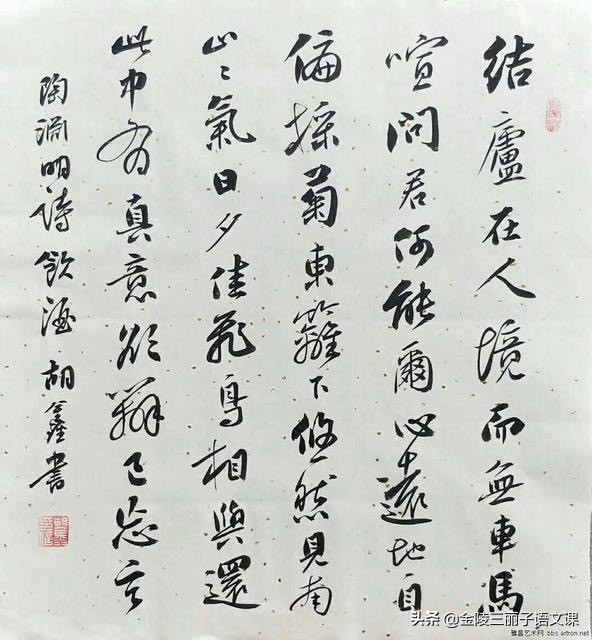 结廬在人境而無車馬
喧問君何能爾心遠地自
偏採菊東籬下悠然見南
山〻氣日夕佳飛鳥相與還
此中有真意欲辯已忘言
陶淵明詩飲酒胡鑫書
头条 @金陵三丽子语文课
雅昌艺术网 bbs.artron.net